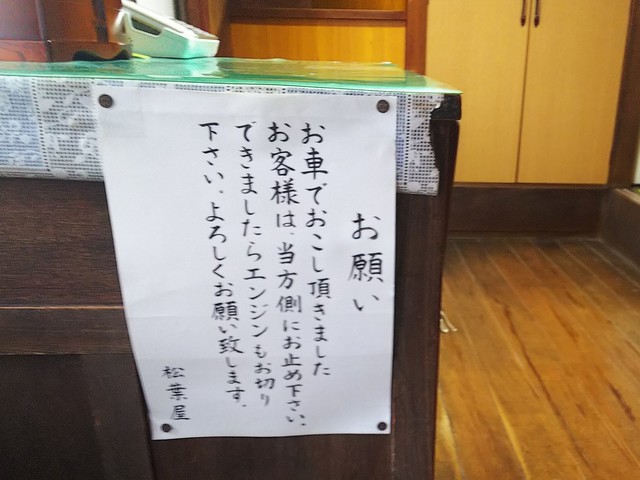 お願い
お車でおこし頂きました
お客様は、当方側にお止め下さい、
できましたらエンジンもお切り
下さい、よろしくお願い致します。
松葉屋